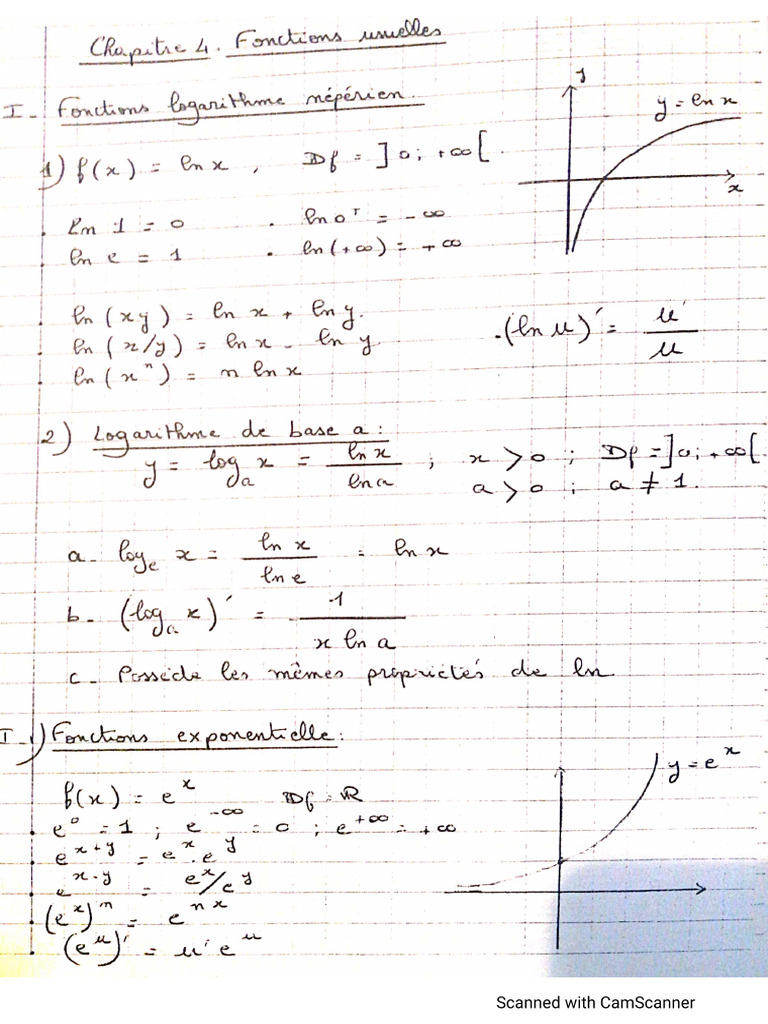 Chapitre 4. Fonctions usuelles
I - Fonctions logarithme népérien.
y
y = ln x
x
1) f(x) = ln x , Df = ]0; +∞[.
ln 1 = 0 . ln 0⁺ = -∞
ln e = 1 . ln(+∞) = +∞
ln(xy) = ln x + ln y.
ln(x/y) = ln x - ln y.
ln(xⁿ) = n ln x
.(ln u)' = u'/u
2) Logarithme de base a:
y = logₐ x = ln x / ln a ; x > 0 ; Df = ]0; +∞[
a > 0 ; a ≠ 1.
a- logₑ x = ln x / ln e = ln x
b- (logₐ x)' = 1 / x ln a
c- Possède les mêmes propriétés de ln
I - 1) Fonctions exponentielle:
f(x) = eˣ Df = ℝ
y = eˣ
. e⁰ = 1 ; e^-∞ = 0 ; e^+∞ = +∞
. e^x+y = e^x . e^y
. e^x-y = e^x/e^y
. (e^x)^n = e^nx
. (e^u)' = u' e^u
Scanned with CamScanner